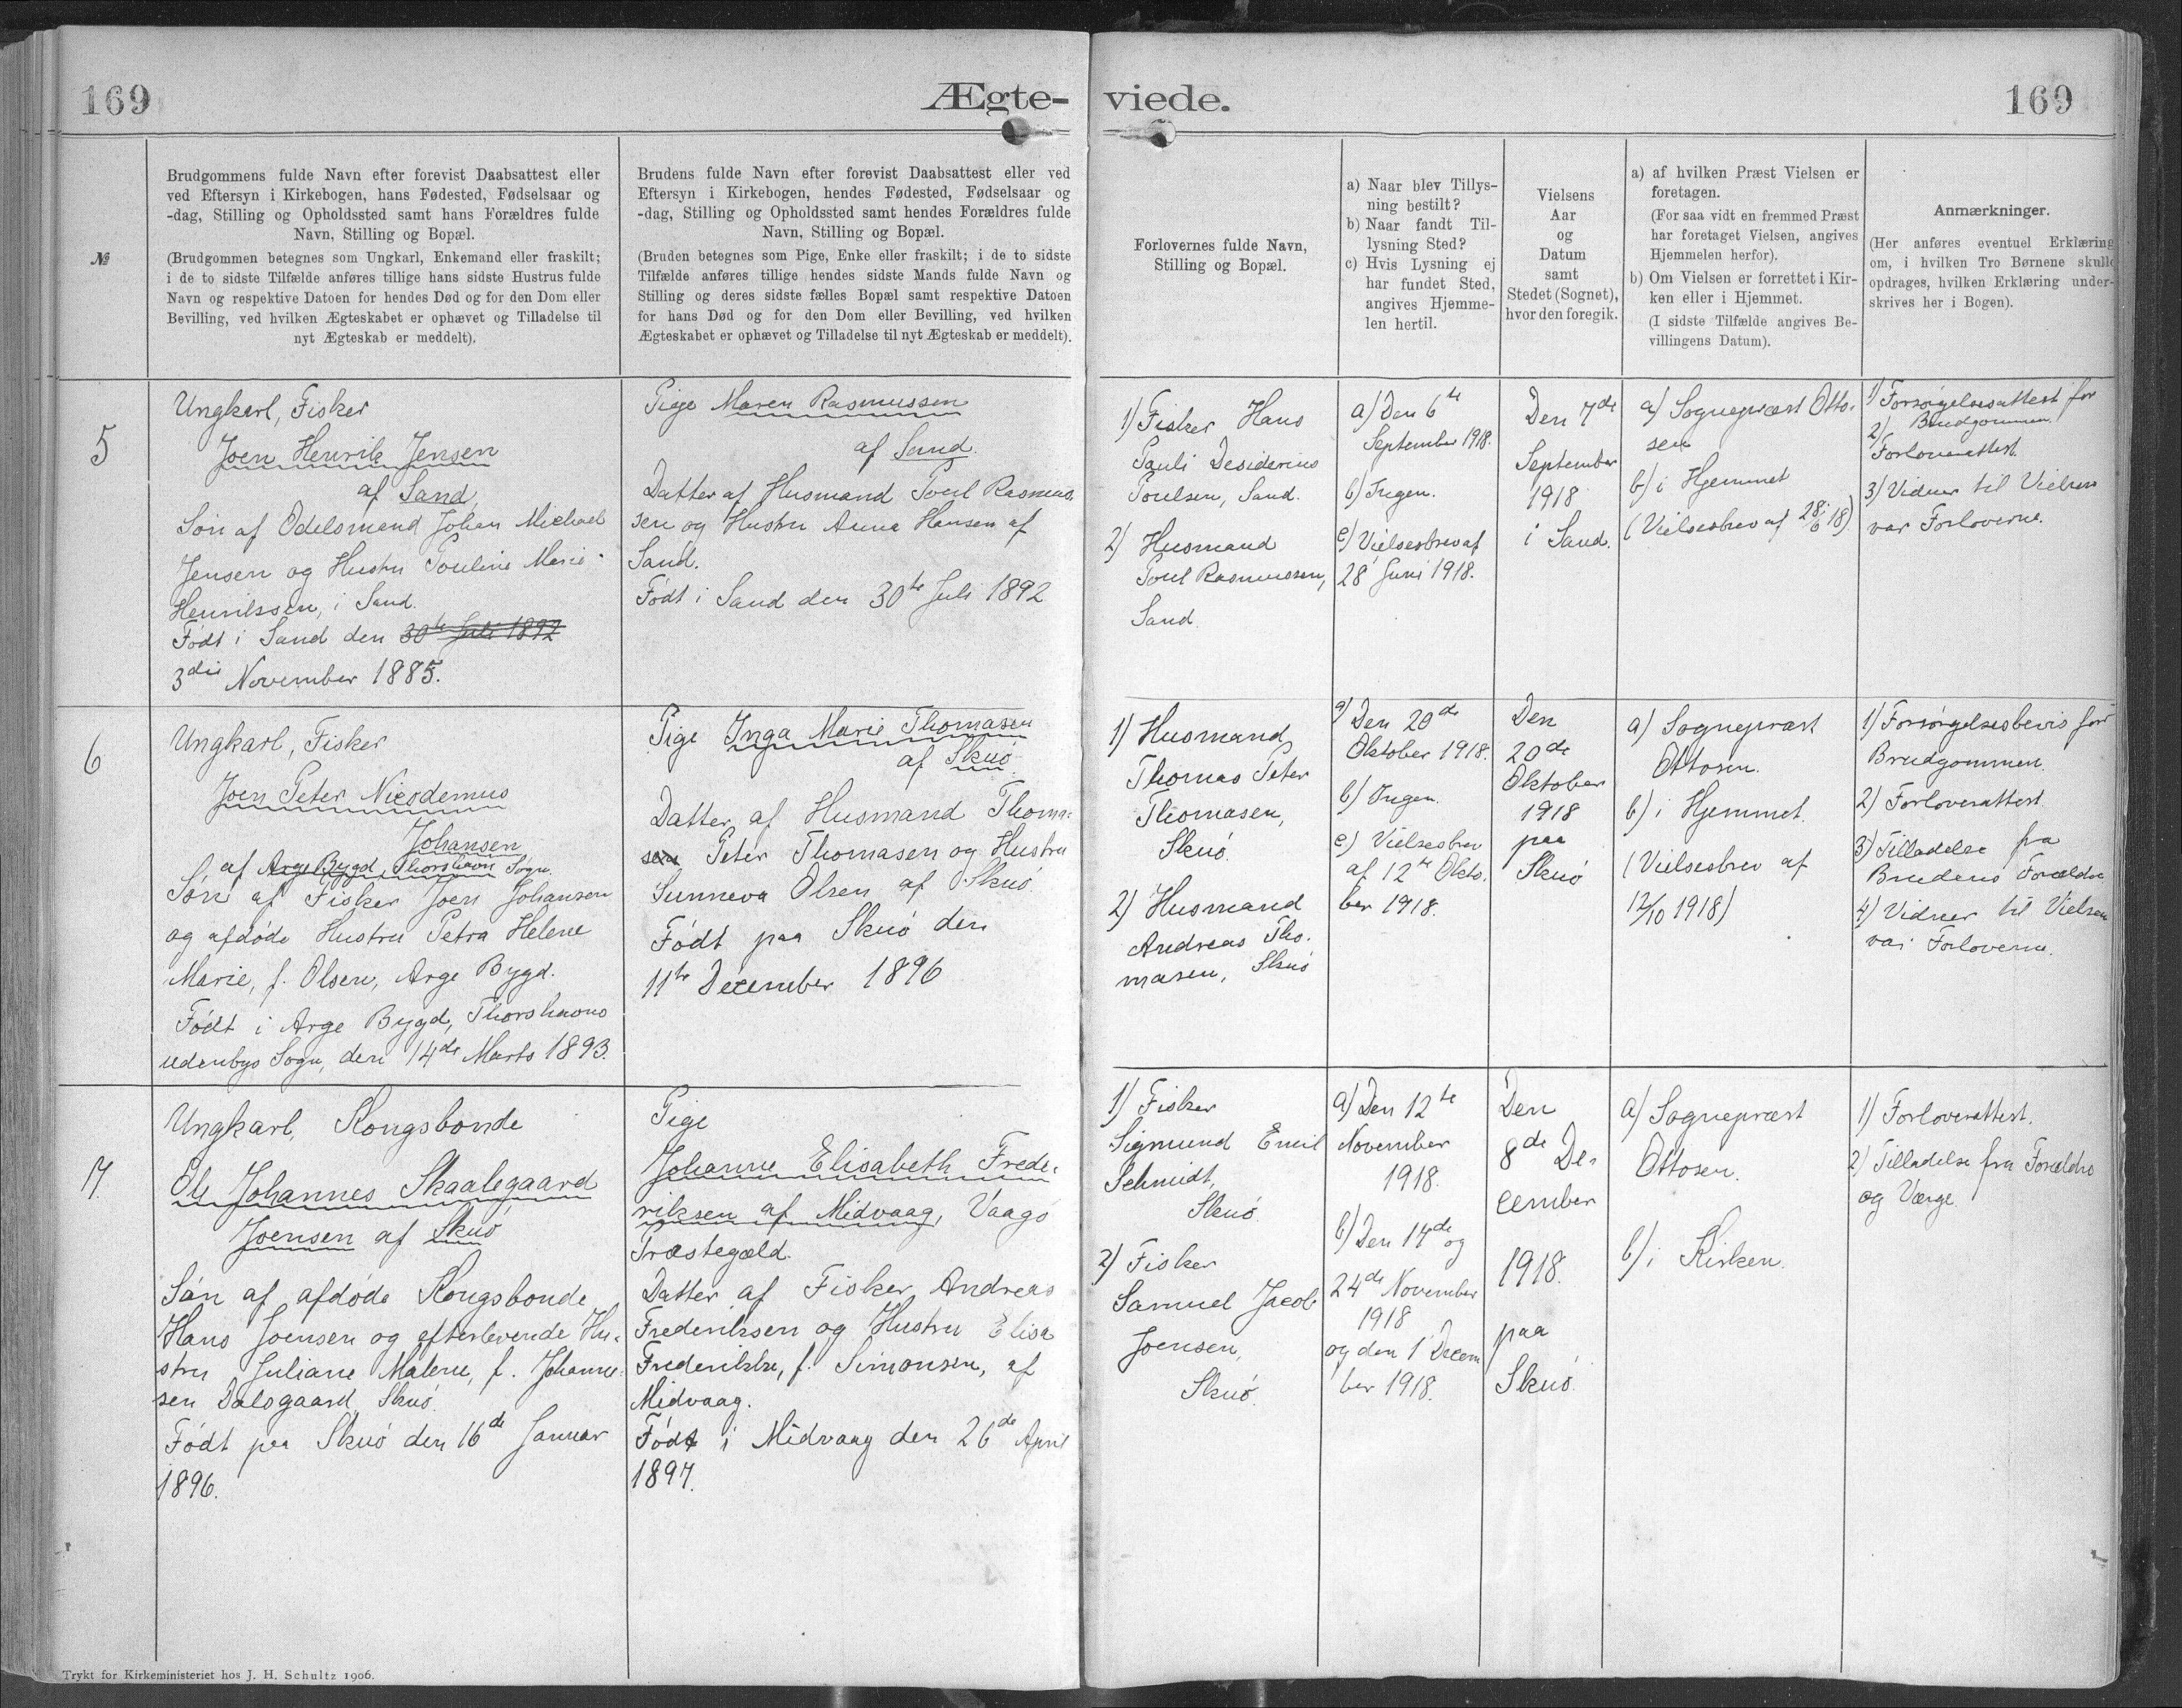 169
Ægte-
viede.
169
№
Brudgommens fulde Navn efter forevist Daabsattest eller
ved Eftersyn i Kirkebogen, hans Fødested, Fødselsaar og
-dag, Stilling og Opholdssted samt hans Forældres fulde
Navn, Stilling og Bopæl.
(Brudgommen betegnes som Ungkarl, Enkemand eller fraskilt;
i de to sidste Tilfælde anføres tillige hans sidste Hustrus fulde
Navn og respektive Datoen for hendes Død og for den Dom eller
Bevilling, ved hvilken Ægteskabet er ophævet og Tilladelse til
nyt Ægteskab er meddelt).
Brudens fulde Navn efter forevist Daabsattest eller ved
Eftersyn i Kirkebogen, hendes Fødested, Fødselsaar og
-dag, Stilling og Opholdssted samt hendes Forældres fulde
Navn, Stilling og Bopæl.
(Bruden betegnes som Pige, Enke eller fraskilt; i de to sidste
Tilfælde anføres tillige hendes sidste Mands fulde Navn og
Stilling og deres sidste fælles Bopæl samt respektive Datoen
for hans Død og for den Dom eller Bevilling, ved hvilken
Ægteskabet er ophævet og Tilladelse til nyt Ægteskab er meddelt).
Forlovernes fulde Navn,
Stilling og Bopæl.
a) Naar blev Tillys-
ning bestilt?
b) Naar fandt Til-
lysning Sted?
c) Hvis Lysning ej
har fundet Sted,
angives Hjemme-
len hertil.
Vielsens
Aar
og
Datum
samt
Stedet (Sognet),
hvor den foregik.
a) af hvilken Præst Vielsen er
foretagen.
(For saa vidt en fremmed Præst
har foretaget Vielsen, angives
Hjemmelen herfor).
b) Om Vielsen er forrettet i Kir-
ken eller i Hjemmet.
(I sidste Tilfælde angives Be-
villingens Datum).
Anmærkninger.
(Her anføres eventuel Erklæring
om, i hvilken Tro Børnene skulle
opdrages, hvilken Erklæring under-
skrives her i Bogen).
5
Ungkarl, Fisker
Joen Henrik Jensen
af Sand
Søn af Odelsmand Johan Michael
Jensen og Hustru Pouline Marie
Henrikssen, i Sand.
Født i Sand den 30te Juli 1892
3die November 1885.
Pige Maren Rasmussen
af Sand.
Datter af Husmand Poul Rasmus-
sen og Hustru Anna Hansen af
Sand.
Født i Sand den 30te Juli 1892
1) Fisker Hans
Pauli Desiderius
Poulsen, Sand.
2) Husmand
Poul Rasmussen,
Sand.
a) Den 6te
September 1918.
b) Ingen.
c) Vielsesbrev af
28 Juni 1918.
Den 7de
September
1918
i Sand.
a) Sognepræst Otto-
sen
b) i Hjemmet
(Vielsesbrev af 28/6 18).
1) Forsørgelsesattest for
Brudgommen.
2) Forloverattest.
3) Vidner til Vielsen
var Forloverne.
6
Ungkarl, Fisker
Joen Peter Nicodemus
Johansen
af Arge Bygd, Thorshavn Sogn.
Søn af Fisker Joen Johansen
og afdøde Hustru Petra Helene
Marie, f. Olsen, Arge Bygd.
Født i Arge Bygd, Thorshavns
udenbys Sogn, den 14de Marts 1893.
Pige Inga Marie Thomasen
af Skuø.
Datter af Husmand Thoma-
sen Peter Thomasen og Hustru
Sunneva Olsen af Skuø.
Født paa Skuø den
11te December 1896
1) Husmand
Thomas Peter
Thomasen,
Skuø.
2) Husmand
Andreas Tho-
masen, Skuø
a) Den 20de
Oktober 1918.
b) Ingen.
c) Vielsesbrev
af 12te Okto-
ber 1918.
Den
20de
Oktober
1918
paa
Skuø
a) Sognepræst
Ottosen.
b) i Hjemmet.
(Vielsesbrev af
12/10 1918)
1) Forsørgelsesbevis for
Brudgommen.
2) Forloverattest.
3) Tilladelse fra
Brudens Forældre
4) Vidner til Vielsen
var Forloverne.
7.
Ungkarl, Kongsbonde
Ole Johannes Skaalegaard
Joensen af Skuø
Søn af afdøde Kongsbonde
Hans Joensen og efterlevende Hu-
stru Juliane Malene, f. Johanne-
sen Dalsgaard, Skuø.
Født paa Skuø den 16de Januar
1896.
Pige
Johanne Elisabeth Frede-
riksen af Midvaag, Vaagø
Præstegæld.
Datter af Fisker Andreas
Frederiksen og Hustru Elisa
Frederikke, f. Simonsen, af
Midvaag.
Født i Midvaag den 26de April
1897.
1) Fisker
Sigmund Emil
Schmidt,
Skuø.
2) Fisker
Samuel Jacob
Joensen,
Skuø.
a) Den 12te
November
1918.
b) Den 17de og
24de November
1918
og den 1 Decem
ber 1918.
Den
8de De-
cember
1918.
paa
Skuø.
a) Sognepræst
Ottosen.
b) i Kirken.
1) Forloverattest.
2) Tilladelse fra Forældre
og Værge
Trykt for Kirkeministeriet hos J. H. Schultz 1906.